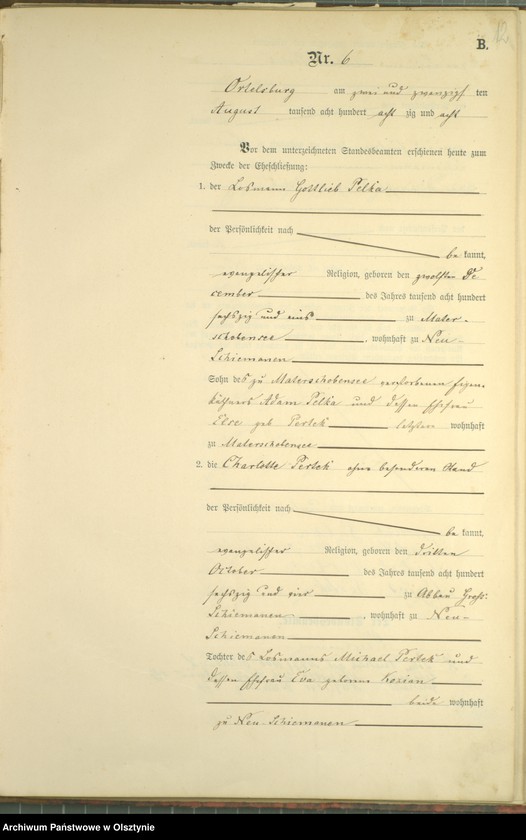 B.
Nr. 6
Ortelsburg am zwei und zwanzigs ten
August tausend acht hundert acht zig und acht
Vor dem unterzeichneten Standesbeamten erschienen heute zum
Zwecke der Eheschließung:
1. der Losmann Gottlieb Pelka
der Persönlichkeit nach
be kannt,
evangelischer Religion, geboren den zwoelften De
cember des Jahres tausend acht hundert
sechszig und eins zu Mater-
schobensee, wohnhaft zu Neu-
Schiemanen
Sohn des zu Materschobensee verstorbenen Eigen-
käthners Adam Pelka und dessen Ehefrau
geb Pertek letztere wohnhaft
zu Materschobensee
2. die Charlotte Pertek ohne besonderen Stand
der Persönlichkeit nach
be kannt,
evangelischer Religion, geboren den dritten
October des Jahres tausend acht hundert
sechszig und vier zu Abbau Groß-
Schiemanen, wohnhaft zu Neu-
Schiemanen
Tochter des Losmanns Michael Pertek und
dessen Ehefrau Eva geborene Kozian
beide wohnhaft
zu Neu-Schiemanen
Archiwum Państwowe w Olsztynie